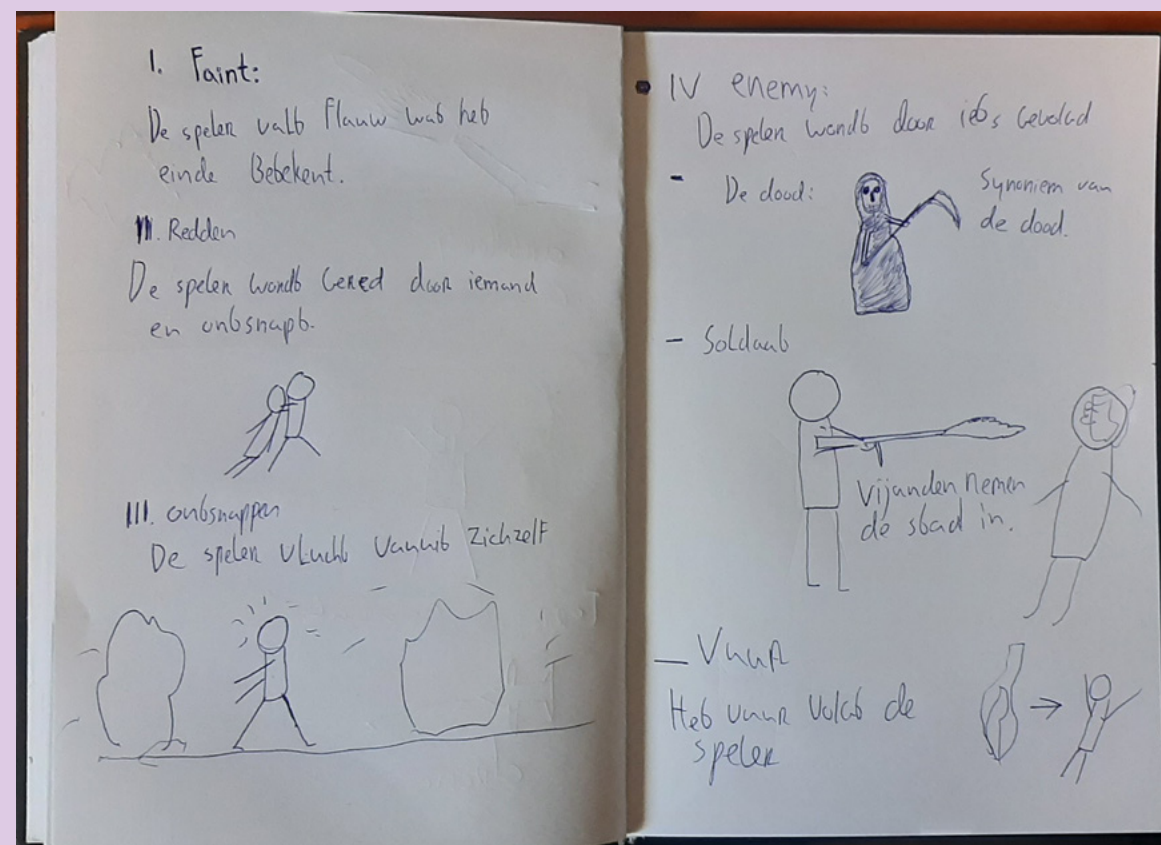 I. Faint:
De speler valt flauw wat het
einde Betekent.
II. Redden
De speler wordt Gered door iemand
en ontsnapt.
III. ontsnappen
De speler vlucht vanuit zichzelf
IV enemy:
De speler wordt door iets Gevolgd
- De dood:
Synoniem van
de dood.
- Soldaat
Vijanden nemen
de stad in.
- Vuur
Het vuur volgt de
speler